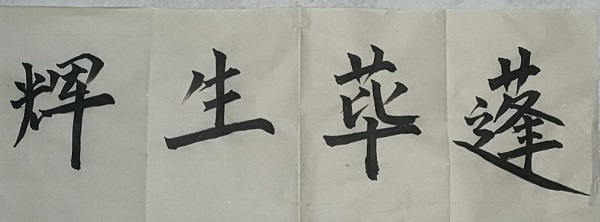 蓬荜生辉